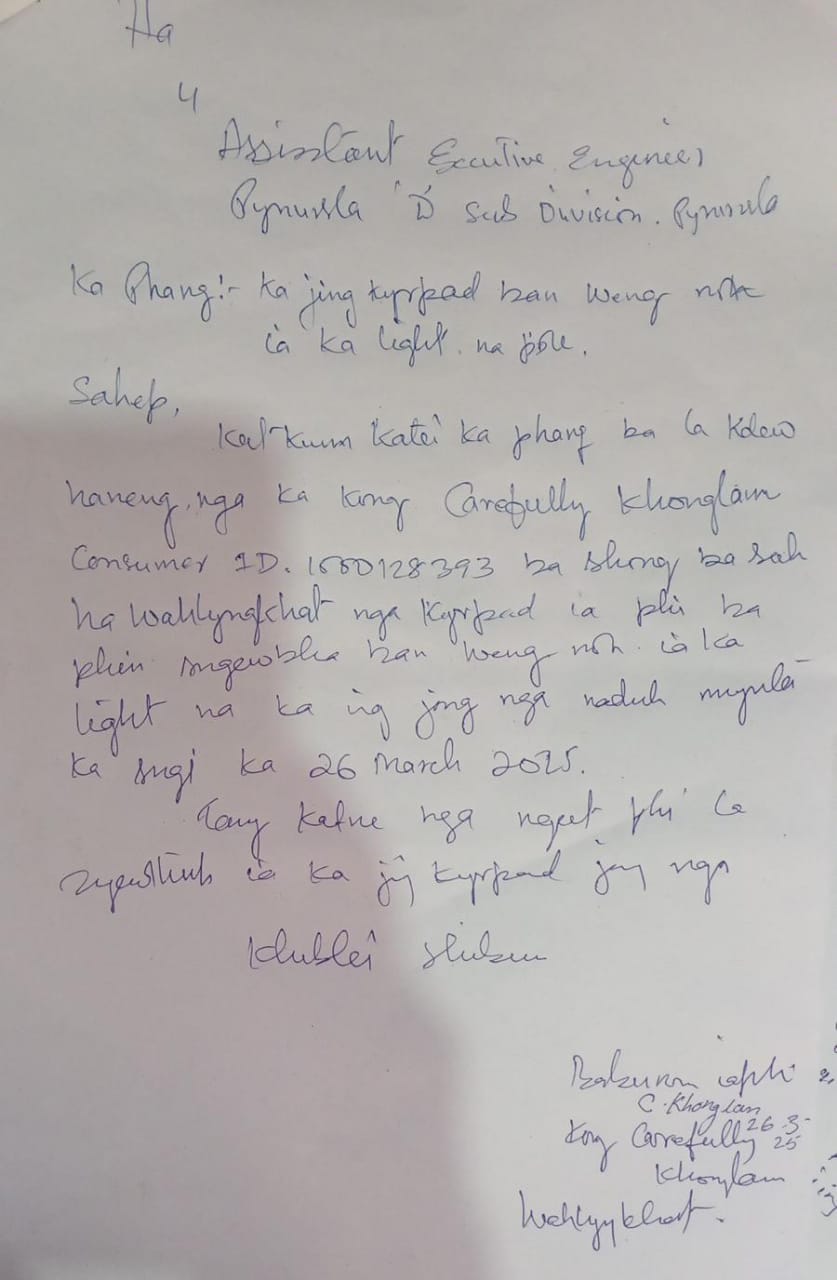 Ha
U
Assisstant Excutive Engineer
Pynursla 'D' Sub Division. Pynursla
Ka Phang:- Ka jing kyrpad ban weng noh
ia ka light na pole.
Saheb,
Kat kum katei ka phang ba la kdew
haneng, nga ka kong Carefully Khonglam
Consumer ID. 1550128393 ba shong ba sah
ha Wahlyngkhat nga kyrpad ia phi ba
phin sngewbha ban weng noh ia ka
light na ka ing jong nga naduh mynta
ka sngi ka 26 March 2025.
Tang katne nga ngeit phi la
sngewthuh ia ka jing kyrpad jong nga
Khublei shibun
Baburom iaphi
C. Khonglam
26-3-25
Kong Carefully
Khonglam
Wahlyngkhat.